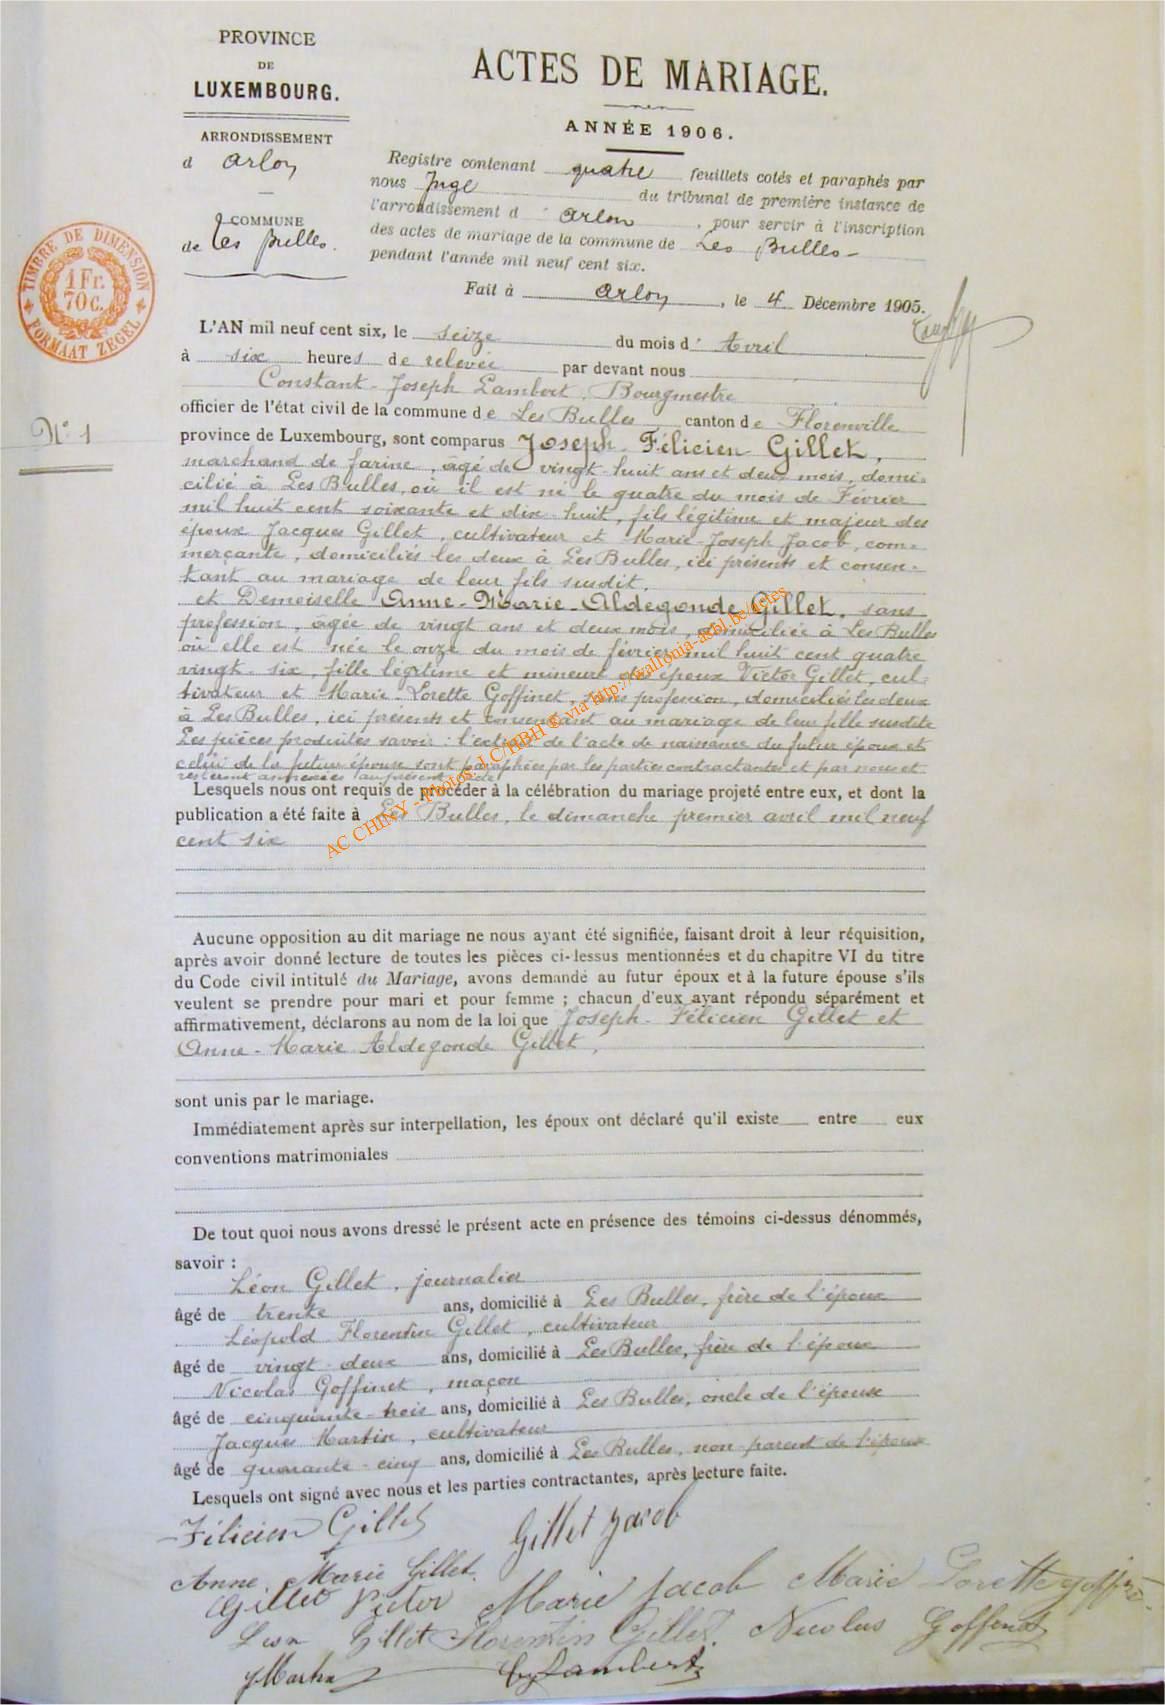 PROVINCE
DE
LUXEMBOURG.
ARRONDISSEMENT
d Arlon
COMMUNE
de Les Bulles.
TIMBRE DE DIMENSION
1 Fr.
70 c.
FORMAAT ZEGEL
ACTES DE MARIAGE.
ANNÉE 1906.
Registre contenant quatre feuillets cotés et paraphés par
nous Juge du tribunal de première instance de
l'arrondissement d' Arlon, pour servir à l'inscription
des actes de mariage de la commune de Les Bulles
pendant l'année mil neuf cent six.
Fait à Arlon, le 4 Décembre 1905.
N° 1
L'AN mil neuf cent six, le seize du mois d' Avril
à six heures de relevée par devant nous
Constant-Joseph Lambert, Bourgmestre
officier de l'état civil de la commune de Les Bulles canton de Florenville
province de Luxembourg, sont comparus Joseph-Félicien Gillet,
marchand de farine, âgé de vingt-huit ans et deux mois, domi-
cilié à Les Bulles, où il est né le quatre du mois de Février
mil huit cent soixante et dix-huit, fils légitime et majeur des
époux Jacques Gillet, cultivateur et Marie-Joseph Jacob, com-
merçante, domiciliés les deux à Les Bulles, ici présents et consen-
tant au mariage de leur fils susdit.
et Demoiselle Anne-Marie-Aldegonde Gillet, sans
profession, âgée de vingt ans et deux mois, domiciliée à Les Bulles
où elle est née le onze du mois de février mil huit cent quatre
vingt-six, fille légitime et mineure des époux Victor Gillet, cul-
tivateur et Marie-Lorette Goffinet, sans profession, domiciliés les deux
à Les Bulles, ici présents et consentant au mariage de leur fille susdite
Les pièces produites savoir: l'extrait de l'acte de naissance du futur époux et
celui de la future épouse sont paraphées par les parties contractantes et par nous et
resteront annexées au présent acte
Lesquels nous ont requis de procéder à la célébration du mariage projeté entre eux, et dont la
publication a été faite à Les Bulles, le dimanche premier avril mil neuf
cent six
AC CHINY - Photos J.C/HBH @ via http://wallonia-asbl.be/actes
Aucune opposition au dit mariage ne nous ayant été signifiée, faisant droit à leur réquisition,
après avoir donné lecture de toutes les pièces ci-lessus mentionnées et du chapitre VI du titre
du Code civil intitulé du Mariage, avons demandé au futur époux et à la future épouse s'ils
veulent se prendre pour mari et pour femme ; chacun d'eux ayant répondu séparément et
affirmativement, déclarons au nom de la loi que Joseph-Félicien Gillet et
Anne-Marie Aldegonde Gillet,
sont unis par le mariage.
Immédiatement après sur interpellation, les époux ont déclaré qu'il existe entre eux
conventions matrimoniales
De tout quoi nous avons dressé le présent acte en présence des témoins ci-dessus dénommés,
savoir :
Léon Gillet, journalier
âgé de trente ans, domicilié à Les Bulles, frère de l'époux
Léopold Florentin Gillet, cultivateur
âgé de vingt-deux ans, domicilié à Les Bulles, frère de l'époux
Nicolas Goffinet, maçon
âgé de cinquante-trois ans, domicilié à Les Bulles, oncle de l'épouse
Jacques Martin, cultivateur
âgé de quarante-cinq ans, domicilié à Les Bulles, non parent de l'époux
Lesquels ont signé avec nous et les parties contractantes, après lecture faite.
Félicien Gillet Gillet Jacob
Anne. Marie Gillet.
Gillet Victor Marie Jacob Marie Lorette Goffinet
Léon Gillet Florentin Gillet. Nicolas Goffinet
J Martin C J Lambert